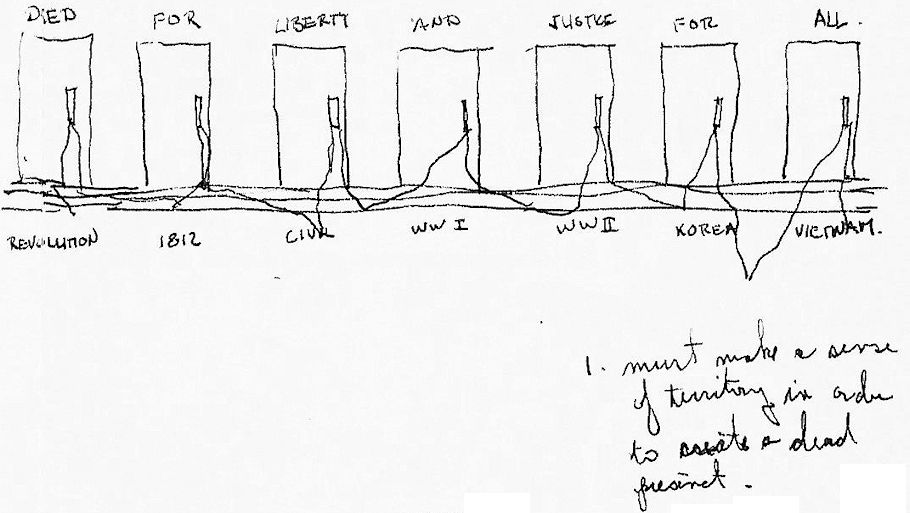 DIED FOR LIBERTY AND JUSTICE FOR ALL.
REVOLUTION 1812 CIVIL WW I WW II KOREA VIETNAM.
1. must make a sense
of territory in order
to a dead
precinct.